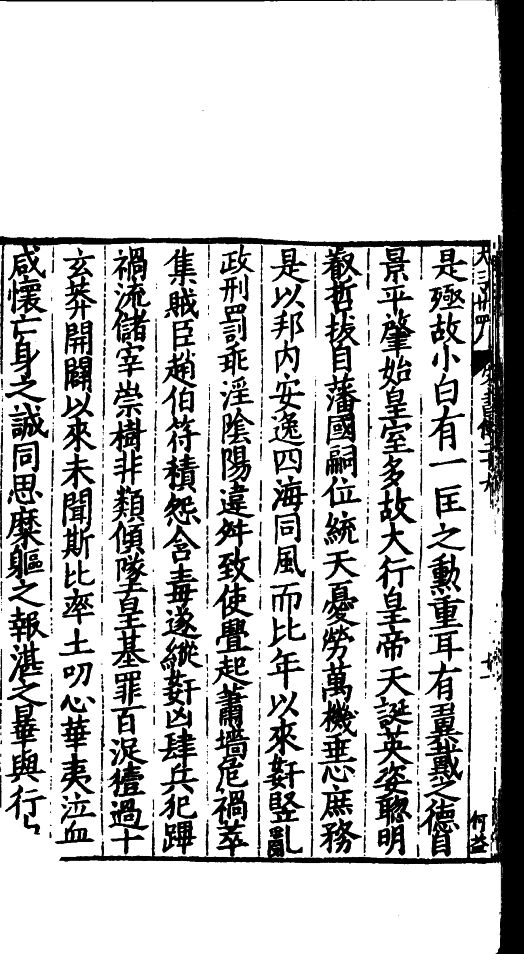 是殛故小白有一匡之勲重耳有翼戴之德自
景平肇始皇室多故大行皇帝天誕英姿聦明
叡哲拔自藩國嗣位統天憂勞萬機垂心庶務
是以邦内安逸四海同風而比年以來姦竪亂
政刑罰乖淫陰陽違舛致使舋起蕭墻危禍萃
集賊臣趙伯符積怨含毒遂縱姦凶肆兵犯蹕
禍流儲宰崇樹非類傾墜皇基罪百浞豷過十
玄莽開闢以來未聞斯比率土叨心華夷泣血
咸懷亡身之誠同思糜軀之報湛之曅與行
何益